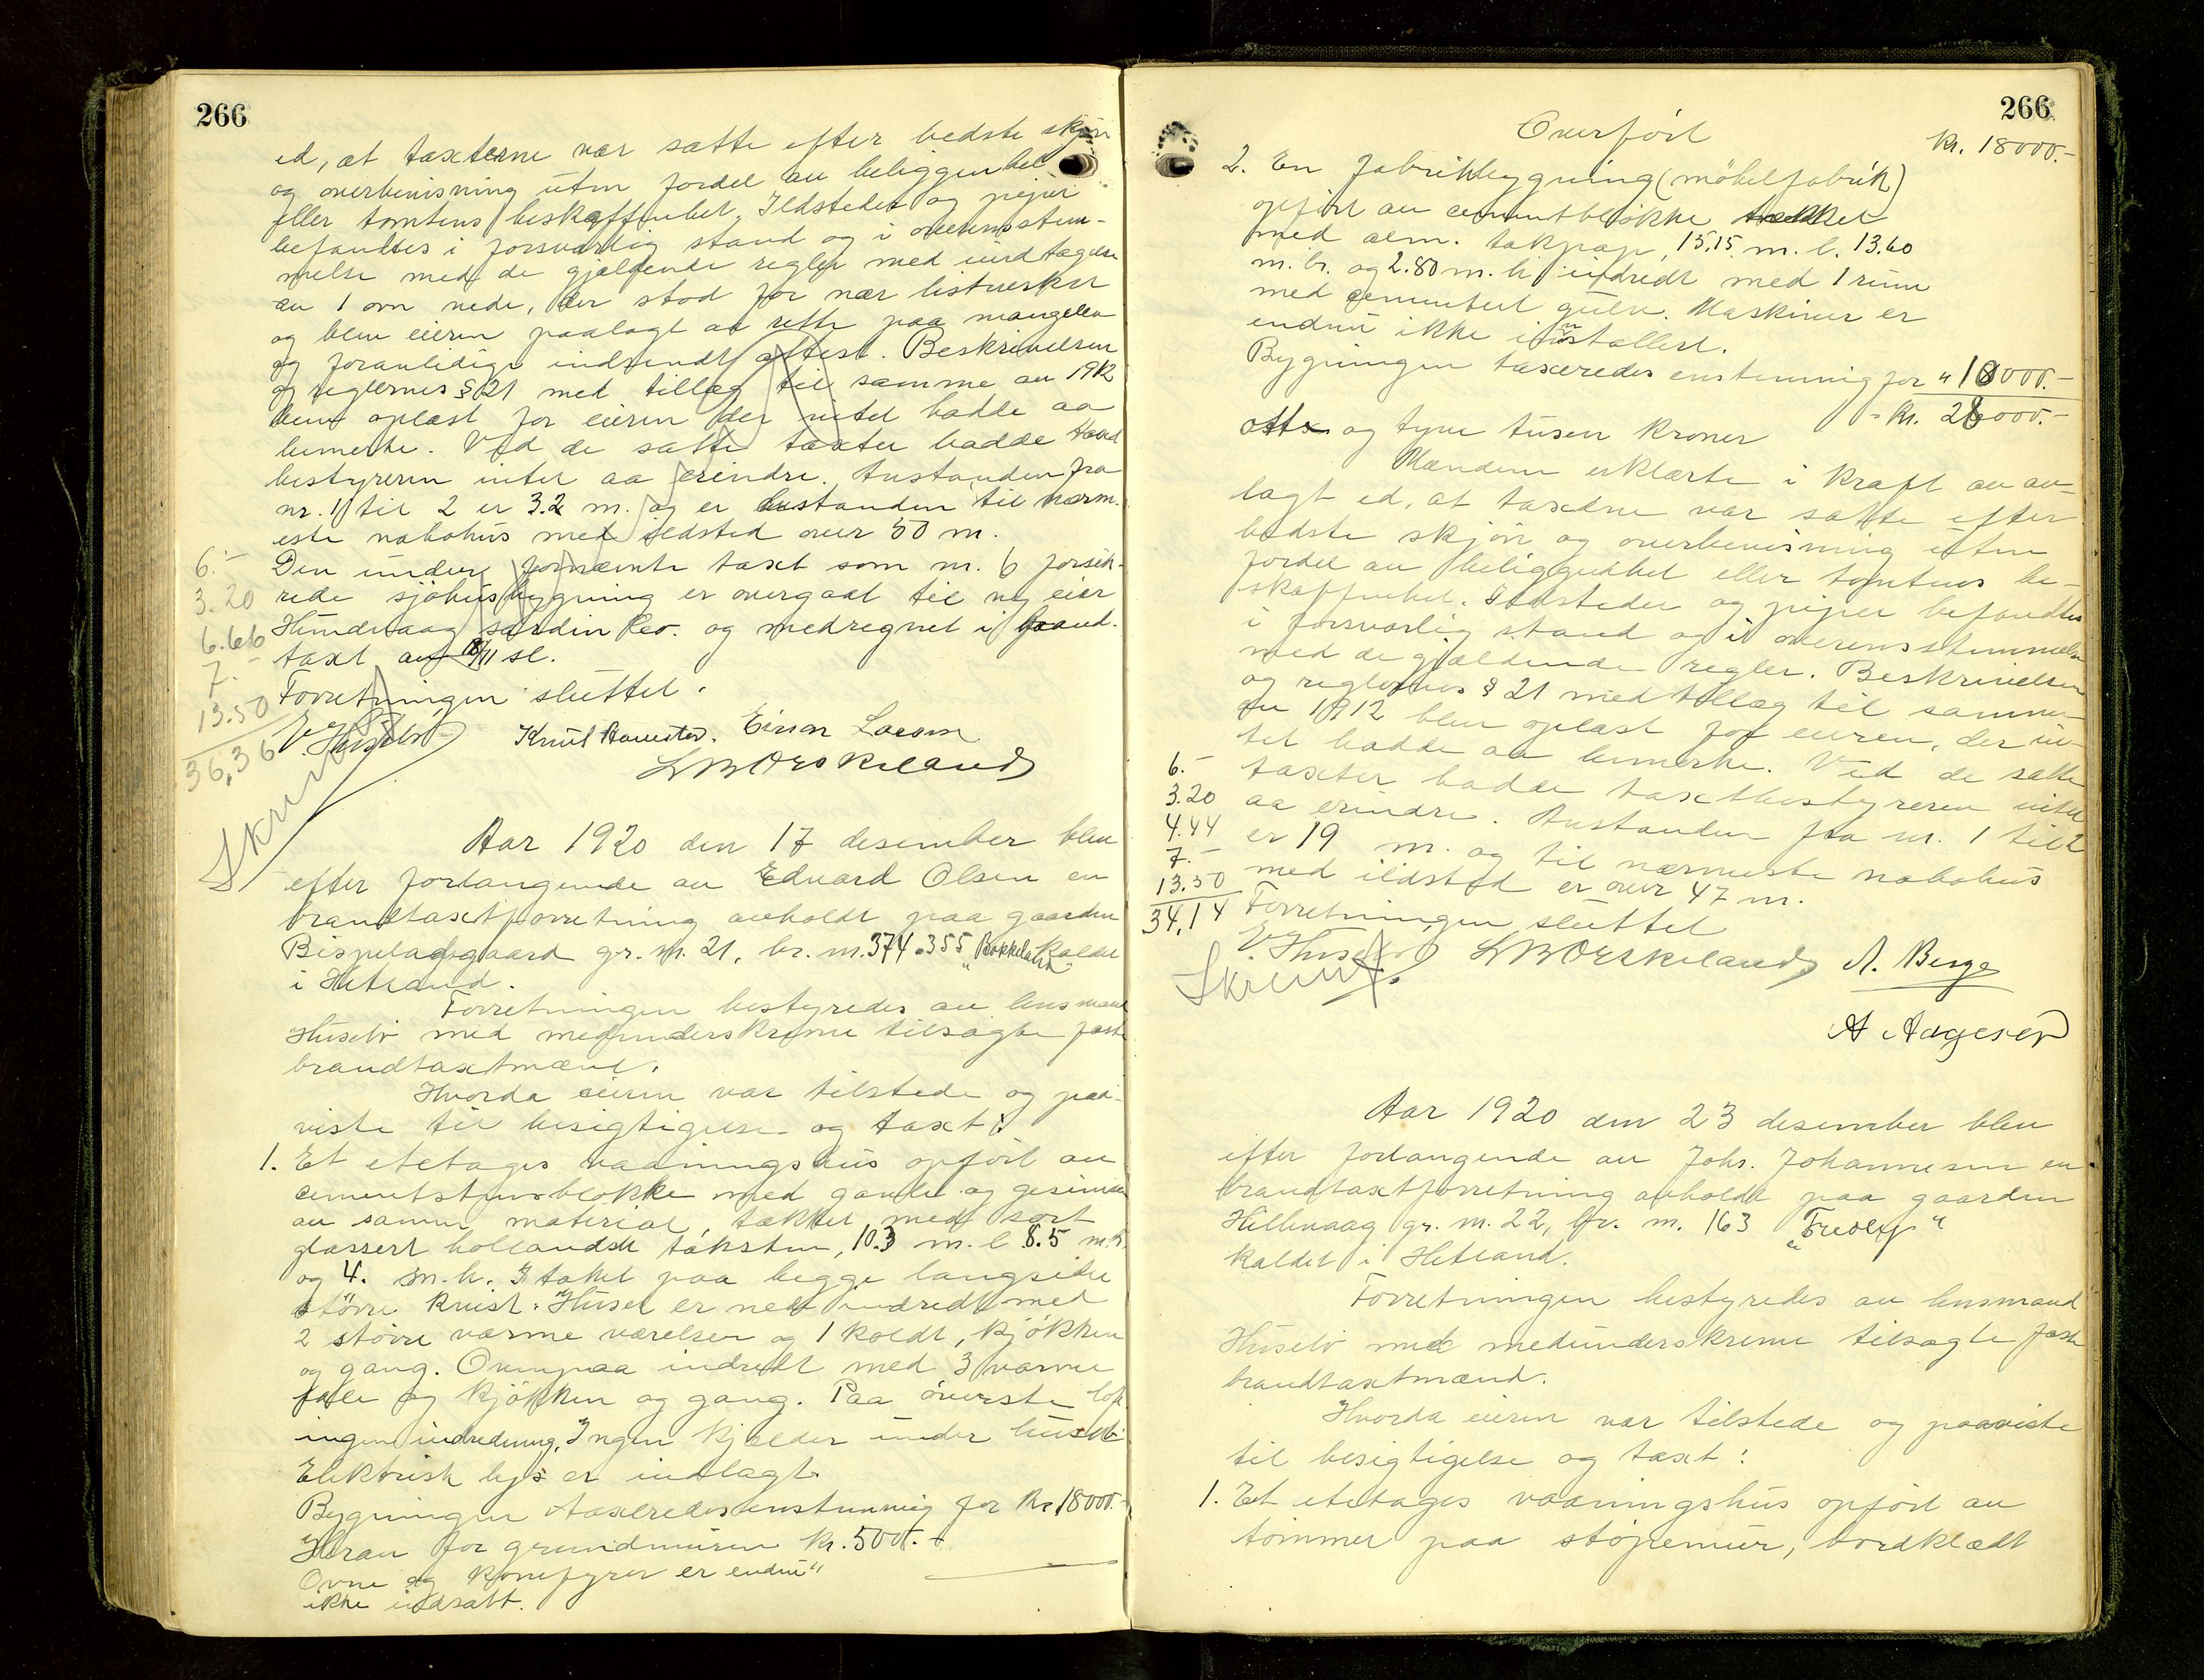 266
ed, at taxterne var satte efter bedste skjøn
og overbevisning uten fordel av beliggenhet
eller tomtens beskaffenhet. Ildsteder og piper
befandtes i forsvarlig stand og i overensstem-
melse med de gjældende regler med undtagelse
av 1 ovn nede, der stod for nær listverket
og blev eieren paalagt at rette paa mangelen
og foranledige indsendt attest. Beskrivelsen
og reglernes § 21 med tillæg til samme av 1912
blev oplæst for eieren der intet hadde aa
bemerke. Ved de satte taxter hadde taxt
bestyreren intet aa erindre. Avstanden fra
nr. 1 til 2 er 3.2 m. og er avstanden til nærm-
este nabohus med ildsted over 50 m.
Den under fornævnte taxt som nr. 6 forsik-
rede sjøhusbygning er overgaat til ny eier
Hundvaag sardin Co. og medregnet i brand-
taxt av 18/11 sl.
Forretningen sluttet.
6.-
3.20
6.66
7.-
13.50
36,36
E. Huselv Knut Haugstad. Einar Larsen
L B Orskeland
Skrevet
Aar 1920 den 17 desember blev
efter forlangende av Edvard Olsen en
brandtaxtforretning avholdt paa gaarden
Bispeladegaard gr. nr. 21, br. nr. 374 . 355 "Bokkeland" kaldet
i Hetland.
Forretningen bestyredes av lensmand
Huselv med medunderskrevne tilsagte faste
brandtaxtmænd.
Hvorda eieren var tilstede og paa-
viste til besigtigelse og taxt:
1. Et etetages vaaningshus opført av
cementstensblokke med gavle og gesimser
av samme material, tækket med sort
glassert hollandsk taksten, 10.3 m. l. 8.5 m. b.
og 4. m. h. I taket paa begge langsider
større kvist. Huset er nede indredt med
2 større varme værelser og 1 koldt, kjøkken
og gang. Ovenpaa indredt med 3 varme
og kjøkken og gang. Paa øverste loft
ingen indredning. Ingen kjelder under huset.
Elektrisk lys er indlagt.
Bygningen taxeredes enstemmig for kr. 18000.-
Herav for grundmuren kr. 500.-
Ovne og komfyrer er endnu
ikke indsatt.
266
Overført kr. 18000.-
2. En fabrikbygning (møbelfabrik)
opført av cementblokke tækket
med alm. takpap, 15,15 m. l. 13.60
m. br. og 2.80 m. h. indredt med 1 rum
med cementert gulv. Maskiner er
endnu ikke installert.
Bygningen taxeredes enstemmig for " 10000.-
= kr. 28000.-
otte og tyve tusen kroner
Mændene erklærte i kraft av av-
lagt ed, at taxterne var satte efter
bedste skjøn og overbevisning uten
fordel av beliggenhet eller tomtens be-
skaffenhet. Ildsteder og piper befandtes
i forsvarlig stand og i overensstemmelse
med de gjældende regler. Beskrivelsen
og reglernes § 21 med tillæg til samme
av 1912 blev oplæst for eieren, der in-
tet hadde aa bemerke. Ved de satte
taxter hadde taxtbestyreren intet
aa erindre. Avstanden fra nr. 1 til 2
er 19 m. og til nærmeste nabohus
med ildsted er over 47 m.
Forretningen sluttet
6.-
3.20
4.44
7.-
13.50
34,14
E. Huselv L B Orskeland A. Berge
Skrevet.
A Aagesen
Aar 1920 den 23 desember blev
efter forlangende av Johs. Johannesen en
brandtaxtforretning avholdt paa gaarden
Hillevaag gr. nr. 22, br. nr. 163 "Fredly"
kaldet i Hetland.
Forretningen bestyredes av lensmand
Huselv med medunderskrevne tilsagte faste
brandtaxtmænd.
Hvorda eieren var tilstede og paaviste
til besigtigelse og taxt:
1. Et etetages vaaningshus opført av
tømmer paa støpemur, bordklædt